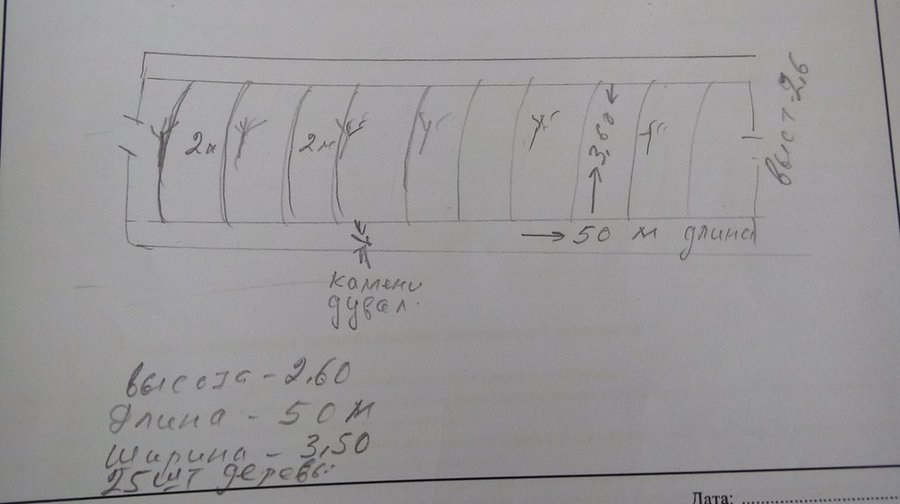 2м
2м
3,60
выст-2,6
50 м длина
камени
дувал.
высота - 2.60
длина - 50 м
ширина - 3,50
25 шт деревы
Дата: